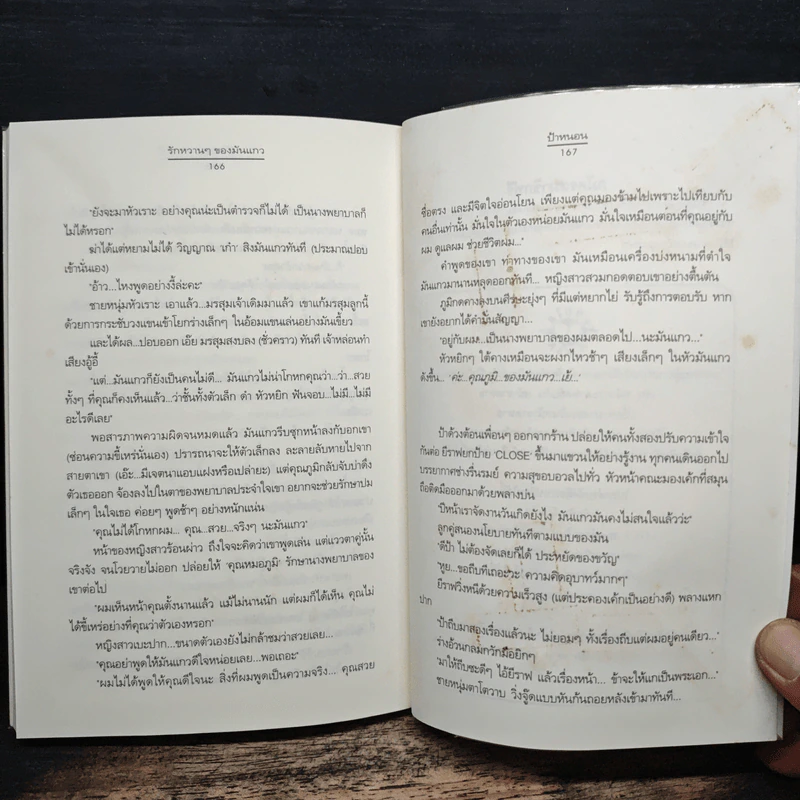 รักหวานๆ ของมันแกว
166
"ยังจะมาหัวเราะ อย่างคุณน่ะเป็นตำรวจก็ไม่ได้ เป็นนางพยาบาลก็
ไม่ได้หรอก"
ฆ่าได้แต่หยามไม่ได้ วิญญาณ 'เก๋า' สิงมันแกวทันที (ประมาณปอบ
เข้านั่นเอง)
"อ้าว...ไหงพูดอย่างงี้ล่ะคะ"
ชายหนุ่มหัวเราะ เอาแล้ว...มรสุมเจ้าเดิมมาแล้ว เขาแก้มรสุมลูกนี้
ด้วยการกระชับวงแขนเข้าโยกร่างเล็กๆ ในอ้อมแขนเล่นอย่างมันเขี้ยว
และได้ผล...ปอบออก เอ๊ย มรสุมสงบลง (ชั่วคราว) ทันที เจ้าหล่อนทำ
เสียงอู้อี้
"แต่...มันแกวก็ยังเป็นคนไม่ดี... มันแกวไม่น่าโกหกคุณว่า...ว่า...สวย
ทั้งๆ ที่คุณก็คงเห็นแล้ว...ว่าชั้นทั้งตัวเล็ก ดำ หัวหยิก ฟันจอบ...ไม่มี...ไม่มี
อะไรดีเลย"
พอสารภาพความผิดจนหมดแล้ว มันแกวรีบซุกหน้าลงกับอกเขา
(ซ่อนความขี้เหร่นั่นเอง) ปรารถนาจะให้ตัวเล็กลง ละลายลับหายไปจาก
สายตาเขา (เอ๊ะ...มีเจตนาแอบแฝงหรือเปล่ายะ) แต่คุณภูมิกลับจับบ่าดึง
ตัวเธอออก จ้องลงไปในตาของพยาบาลประจำใจเขา อยากจะช่วยรักษาปม
เล็กๆ ในใจเธอ ค่อยๆ พูดช้าๆ อย่างหนักแน่น
"คุณไม่ได้โกหกผม... คุณ...สวย...จริงๆ นะมันแกว"
หน้าของหญิงสาวร้อนผ่าว ถึงใจจะคิดว่าเขาพูดเล่น แต่แววตาคู่นั้น
จริงจัง จนโวยวายไม่ออก ปล่อยให้ 'คุณหมอภูมิ' รักษานางพยาบาลของ
เขาต่อไป
"ผมเห็นหน้าคุณตั้งนานแล้ว แม้ไม่นานนัก แต่ผมก็ได้เห็น คุณไม่
ได้ขี้เหร่อย่างที่คุณว่าตัวเองหรอก"
หญิงสาวเบะปาก...ขนาดตัวเองยังไม่กล้าชมว่าสวยเลย...
"คุณอย่าพูดให้มันแกวดีใจหน่อยเลย...พอเถอะ"
"ผมไม่ได้พูดให้คุณดีใจนะ สิ่งที่ผมพูดเป็นความจริง... คุณสวย
ป้าหนอน
167
ซื่อตรง และมีจิตใจอ่อนโยน เพียงแต่คุณมองข้ามไปเพราะไปเทียบกับ
คนอื่นเท่านั้น มั่นใจในตัวเองหน่อยมันแกว มั่นใจเหมือนตอนที่คุณอยู่กับ
ผม ดูแลผม ช่วยชีวิตผม..."
คำพูดของเขา ท่าทางของเขา มันเหมือนเครื่องบ่งหนามที่ตำใจ
มันแกวมานานหลุดออกทันที... หญิงสาวสวมกอดตอบเขาอย่างตื้นตัน
ภูมิกดคางลงบนศีรษะยุ่งๆ ที่มีแต่หยากไย่ รับรู้ถึงการตอบรับ หาก
เขายังอยากได้คำมั่นสัญญา...
"อยู่กับผม...เป็นนางพยาบาลของผมตลอดไป...นะมันแกว..."
หัวหยิกๆ ใต้คางเหมือนจะผงกไหวช้าๆ เสียงเล็กๆ ในหัวมันแกว
ดังขึ้น... 'ค่ะ...คุณภูมิ...ของมันแกว...เย้...'
ป้าด้วงต้อนเพื่อนๆ ออกจากร้าน ปล่อยให้คนทั้งสองปรับความเข้าใจ
กันต่อ ยีราฟยกป้าย 'CLOSE' ขึ้นมาแขวนให้อย่างรู้งาน ทุกคนเดินออกไป
บรรยากาศช่างรื่นรมย์ ความสุขอบอวลไปทั่ว หัวหน้าคณะมองเค้กที่สมุน
ถือติดมือออกมาด้วยพลางบ่น
"ปีหน้าเราจัดงานวันเกิดยังไง มันแกวมันคงไม่สนใจแล้วว่ะ"
ลูกคู่สนองนโยบายทันทีตามแบบของมัน
"ดีป้า ไม่ต้องจัดเลยก็ได้ ประหยัดของขวัญ"
"ทุย...ขอถีบทีเถอะวะ ความคิดอุบาทว์มากๆ"
ยีราฟวิ่งหนีด้วยความเร็วสูง (แต่ประคองเค้กเป็นอย่างดี) พลางแหก
ปาก
"ป้าถีบมาสองเรื่องแล้วนะ ไม่ยอมๆ ทั้งเรื่องถีบแต่ผมอยู่คนเดียว..."
ร่างอ้วนกลมกวักมือยิกๆ
"มาให้ถีบซะดีๆ ไอ้ยีราฟ แล้วเรื่องหน้า... ข้าจะให้แกเป็นพระเอก..."
ชายหนุ่มตาโตวาบ วิ่งจู๊ดแบบหันก้นถอยหลังเข้ามาทันที...